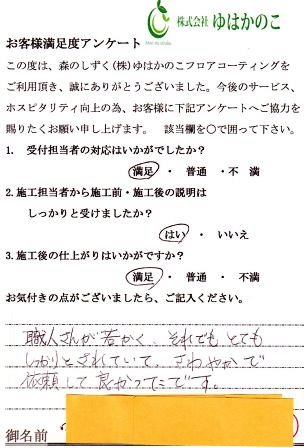 株式会社 ゆはかのこ
お客様満足度アンケート
この度は、森のしずく(株)ゆはかのこフロアコーティングを
ご利用頂き、誠にありがとうございました。今後のサービス、
ホスピタリティ向上の為、お客様に下記アンケートへご協力を
賜りたくお願い申し上げます。 該当欄を〇で囲って下さい。
1. 受付担当者の対応はいかがでしたか?
満足 ・ 普通 ・不 満
2.施工担当者から施工前・施工後の説明は
しっかりと受けましたか?
はい ・ いいえ
3.施工後の仕上がりはいかがですか?
満足 ・ 普通 ・ 不満
お気付きの点がございましたら、ご記入ください。
職人さんが若かく、それでもとても
しっかりとされていて、さわやかで
依頼して良かったです。
御名前